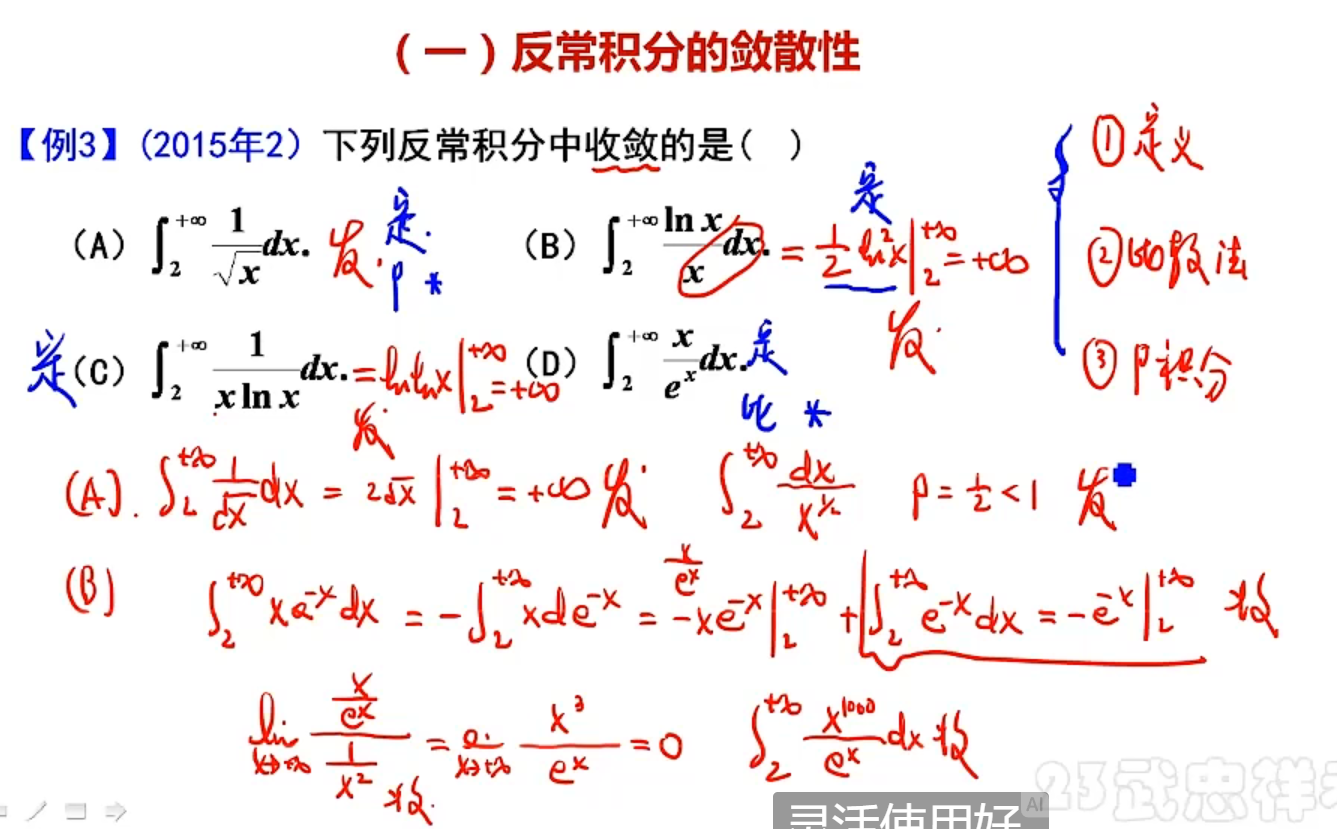 （一）反常积分的敛散性
【例3】(2015年2) 下列反常积分中收敛的是( )
① 定义
(A) ∫₂^{+∞} 1/√x dx. 发. 定. P *
(B) ∫₂^{+∞} ln x/x dx. = 1/2 ln²x |₂^{+∞} = +∞ 发. 定
② 比较法
定 (C) ∫₂^{+∞} 1/(x ln x) dx. = ln ln x |₂^{+∞} = +∞ 发
(D) ∫₂^{+∞} x/e^x dx. 定 比 *
③ P积分
(A). ∫₂^{+∞} 1/√x dx = 2√x |₂^{+∞} = +∞ 发 ∫₂^{+∞} dx/x^{1/2} P = 1/2 < 1 发
(B) ∫₂^{+∞} x e^{-x} dx = -∫₂^{+∞} x de^{-x} = -x e^{-x} |₂^{+∞} + ∫₂^{+∞} e^{-x} dx = -e^{-x} |₂^{+∞} 收
x/e^x
lim_{x→+∞} (x/e^x)/(1/x²) 收. = lim_{x→+∞} x³/e^x = 0 ∫₂^{+∞} x^{1000}/e^x dx 收
灵活使用好
AI
23武忠祥